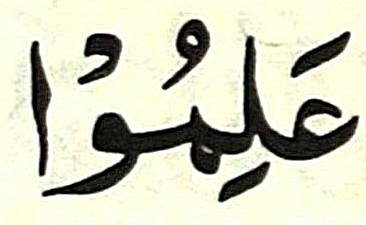 عَلِمُوْا